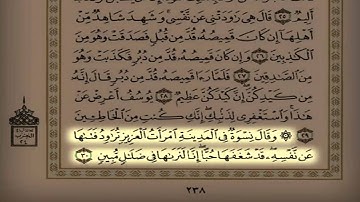 أَلِيمٌ ٢٥ قَالَ هِيَ رَٰوَدَتْنِي عَن نَّفْسِي وَشَهِدَ شَاهِدٌ مِّنْ
أَهْلِهَا إِن كَانَ قَمِيصُهُ قُدَّ مِن قُبُلٍ فَصَدَقَتْ وَهُوَ مِنَ
ٱلْكَٰذِبِينَ ٢٦ وَإِن كَانَ قَمِيصُهُ قُدَّ مِن دُبُرٍ فَكَذَبَتْ وَهُوَ
مِنَ ٱلصَّٰدِقِينَ ٢٧ فَلَمَّا رَءَا قَمِيصَهُ قُدَّ مِن دُبُرٍ قَالَ إِنَّهُ
مِن كَيْدِكُنَّ إِنَّ كَيْدَكُنَّ عَظِيمٌ ٢٨ يُوسُفُ أَعْرِضْ عَنْ
هَٰذَا وَٱسْتَغْفِرِي لِذَنۢبِكِ إِنَّكِ كُنتِ مِنَ ٱلْخَاطِـِٔينَ
٢٩ ۞ وَقَالَ نِسْوَةٌ فِي ٱلْمَدِينَةِ ٱمْرَأَتُ ٱلْعَزِيزِ تُرَٰوِدُ فَتَىٰهَا
عَن نَّفْسِهِ قَدْ شَغَفَهَا حُبًّا إِنَّا لَنَرَىٰهَا فِي ضَلَٰلٍ مُّبِينٍ ٣٠
٢٣٨